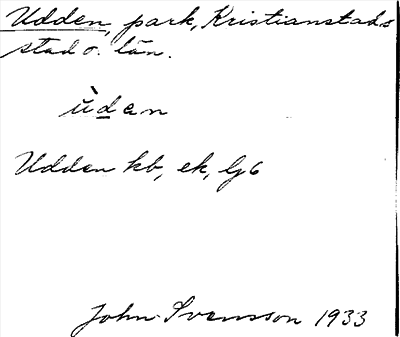 Udden, park, Kristianstads
stad o. län.
ùden
Udden kb, ek, Gj6
John Svensson 1933